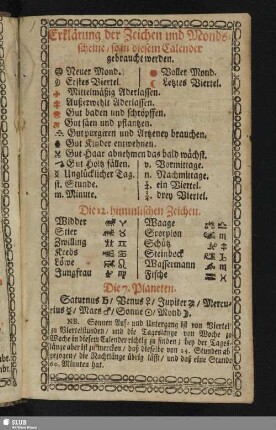 Erklärung der Zeichen und Monds-
scheine / so in diesem Calender
gebraucht werden.
Neuer Mond. Voller Mond.
Erstes Viertel. Letztes Viertel.
Mittelmäßig Aderlassen.
Außerwehlt Aderlassen.
Gut baden und schröpffen.
Gut säen und pflantzen.
Gut purgiren und Artzeney brauchen.
Gut Kinder entwehnen.
Gut Haar abnehmen das bald wächst.
Gut Holtz fällen. v. Vormittage.
Unglücklicher Tag. n. Nachmittage.
st. Stunde. ein Viertel.
m. Minute. drey Viertel.
Die 12. himmlischen Zeichen.
Widder ♈ Waage ♎
Stier ♉ Scorpion ♏
Zwilling ♊ Schütz ♐
Krebs ♋ Steinbock ♑
Löwe ♌ Wassermann ♒
Jungfrau ♍ Fische ♓
Die 7. Planeten.
Saturnus ♄ / Venus ♀ / Jupiter ♃ / Mercu-
rius ☿ / Mars ♂ / Sonne ☉ / Mond ☽.
NB. Sonnen Auf- und Untergang ist von Viertel
zu Viertelstunden / und die Tageslänge von Woche zu
Woche in diesem Calender richtig zu finden; bey der Tages-
länge aber ist zu mercken / daß dieselbe von 24. Stunden ab-
gezogen / die Nachtlänge übrig läßt / und daß eine Stunde
60. Minuten hat.
SLUB